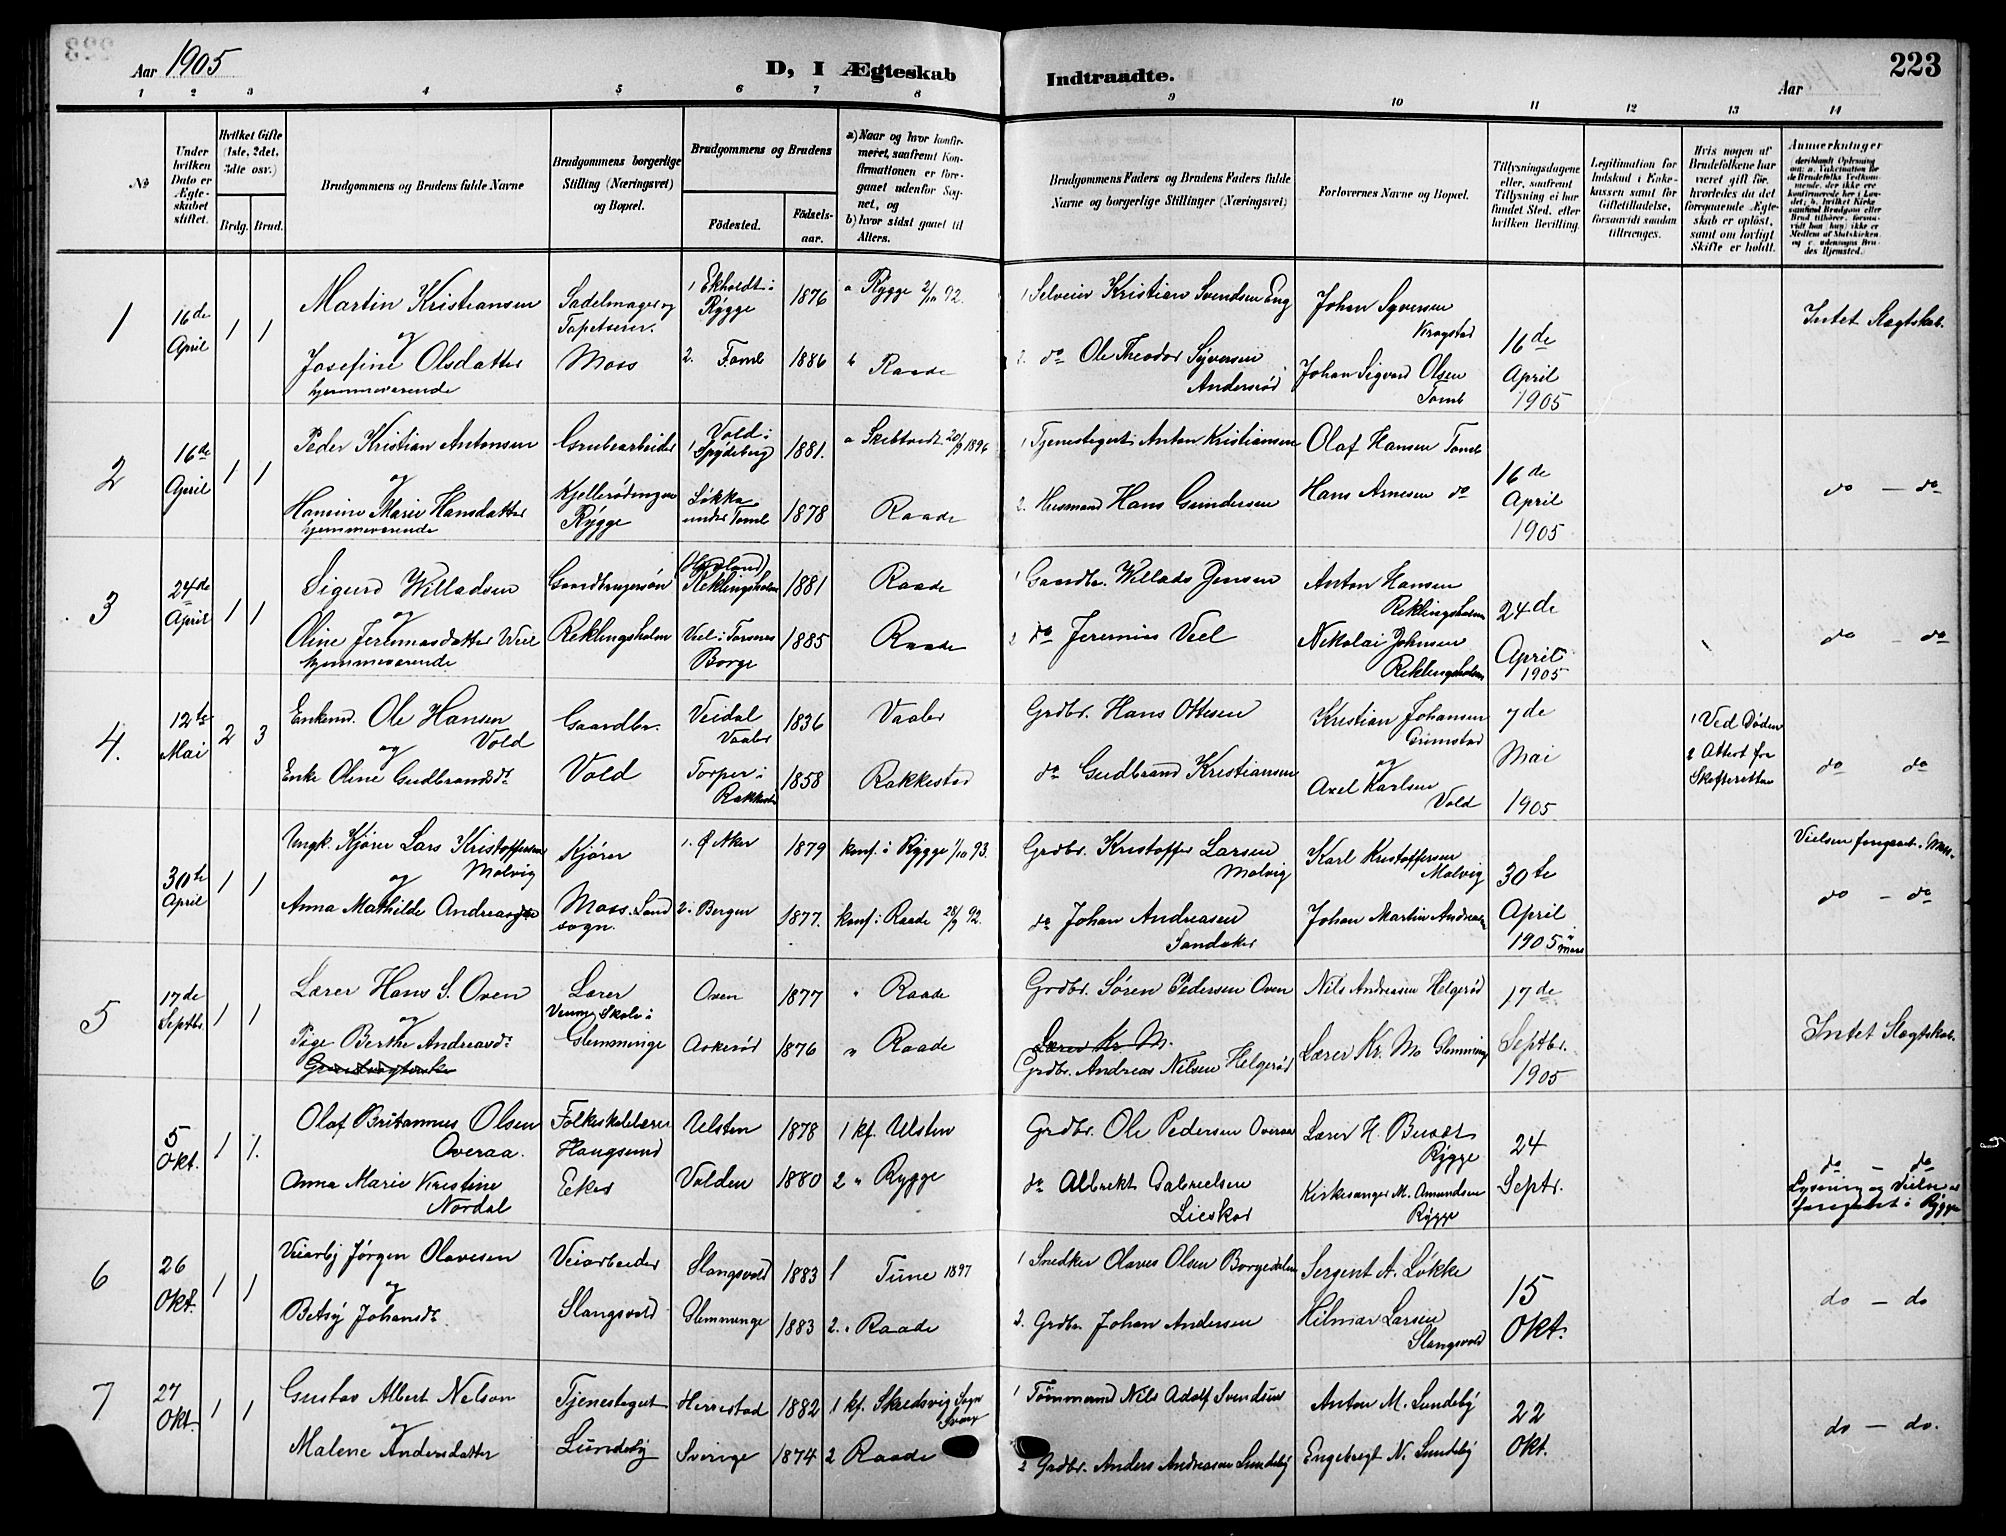 Aar 1905
D, I Ægteskab
Indtraadte.
Aar
223
1 2 3 4 5 6 7 8 9 10 11 12 13 14
No
Under hvilken Dato er Ægteskabet stiftet.
Hvilket Gifte (1ste, 2det, 3dte osv.)
Brdg. Brud.
Brudgommens og Brudens fulde Navne
Brudgommens borgerlige Stilling (Næringsvei) og Bopæl.
Brudgommens og Brudens
Fødested.
Fødselsaar.
a) Naar og hvor konfirmeret, saafremt Konfirmationen er foregaaet udenfor Sognet, og
b) hvor sidst gaaet til Alters.
Brudgommens Faders og Brudens Faders fulde Navne og borgerlige Stillinger (Næringsvei)
Forlovernes Navne og Bopæl.
Tillysningsdagene eller, saafremt Tillysning ei har fundet Sted, efter hvilken Bevilling.
Legitimation for Indskud i Enkekassen samt for Giftetilladelse, forsaavidt saadan tiltrænges.
Hvis nogen af Brudefolkene har været gift før, hvorledes da det foregaaende Ægteskab er opløst, samt om lovligt Skifte er holdt.
Anmerkninger
1
16de April
1 1
Martin Kristiansen
og
Josefine Olsdatter
hjemmeværende
Sadelmager og
Tapetserer.
Moss
1 Ekholdt i
Rygge
2. Tomb
1876
1886
a Rygge 2/10 92.
b Raade
1 Selveier Kristian Svendsen Eng
2. do Ole Theodor Syversen
Andersrød
Johan Syversen
Krogstad
Johan Sigvard Olsen
Tomb
16de
April
1905
Intet Slægtskab.
2
16de April
1 1
Peder Kristian Antonsen
og
Hansine Marie Hansdatter
hjemmeværende
Grubearbeider
Kjellerødengen
Rygge
Vold i
1 Spydeberg
Løkka
under Tomb
1881.
1878
a Skibtvedt 20/9 1896
Raade
1 Tjenestegut Anton Kristiansen
2. Husmand Hans Gundersen
Olaf Hansen Tomb
Hans Arnesen do
16de
April
1905
do — do
3
24de April
1 1
Sigurd Willadsen
og
Oline Jeremiasdatter Veel
hjemmeværende
Gaardbrugersøn
Reklingsholm
Reklingsholm
Veel i Torsnes
Borge
1881
1885
Raade
Raade
1 Gaardbr. Willads Jensen
2 do Jeremias Veel
Anton Hansen
Reklingsholm
Nikolai Johnsen
Reklingsholm
24de
April
1905
do — do
4.
12te Mai
2 3
Enkem. Ole Hansen
og Vold
Enke Oline Gudbrandsdt.
Gaardbr.
Vold
Veidal
Vaaler
Torper i
Rakkestad
1836
1858
Vaaler
Rakkestad
Grdbr. Hans Ottesen
do Gudbrand Kristiansen
Kristian Johansen
Grimstad
og
Axel Karlsen
Vold
7de
Mai
1905
1 Ved Døden
2 Attest fra
Skifteretten
do do
30te April
1 1
Ungk. Kjører Lars Kristoffersen
og Molvig
Anna Mathilde Andreasdtr
Kjører
Moss Land
sogn.
1. Ø Aker
2. Bergen
1879
1877.
konf. i Rygge 1/10 93.
konf. i Raade 28/9 92.
Grdbr. Kristoffer Larsen
Molvig
do Johan Andreasen
Sandaker
Karl Kristoffersen
Molvig
Johan Martin Andreasen
30te
April
1905 i Moss
Vielsen foregaaet i Moss.
do — do
5
17de Septbr.
1 1
Lærer Hans S. Oven
og
Pige Berthe Andreasdt.
Lærer
Skole i
Glemminge
Oven
Aakerød
1877
1876
" Raade
" Raade
Grdbr. Søren Pedersen Oven
Lærer Kr. M.
Grdbr. Andreas Nilsen Helgerød
Nils Andreasen Helgerød
Lærer Kr. Mo Glemminge
17de
Septbr.
1905
Intet Slægtskab.
5 Okt.
1 1.
Olaf Britannus Olsen
Overaa.
Anna Marie Kristine
Nordal
Folkeskolelærer
Haugsund
Eker
Ulsten
Volden
1878
1880
1 kf. Ulsten
2 " Rygge
Grdbr. Ole Pedersen Overaa
do Albrekt Gabrielsen
Lieskov
Lærer H.
Rygge
Kirkesanger M. Amundsen
Rygge
24
Septr.
do — do
Lysning og Vielse er
foregaaet i Rygge
6
26 Okt.
1 1
Veiarb Jørgen Olavesen
og
Betsy Johansdt.
Veiarbeider
Slangsvold
Slangsvold
Glemminge
1883
1883
1 Tune 1897
2. " Raade
1 Snedker Olaves Olsen Borgedalen
2. Grdbr. Johan Andersen
Sergent A. Løkke
Hilmar Larsen
Slangsvold
15
Okt.
do — do
7
27 Okt.
1 1
Gustav Albert Nelson
og
Malene Andersdatter
Tjenestegut
Lundeby
Herrestad
Sverige
1882
1874
1 kf. Skredsvig Sogn
Sverig
2 Raade
1 Tømmermand Nils Adolf Svendsen
2 Grdbr. Anders Andreasen Lundeby
Anton M. Lundeby
Engebregt N. Lundeby
22
Okt.
do — do.